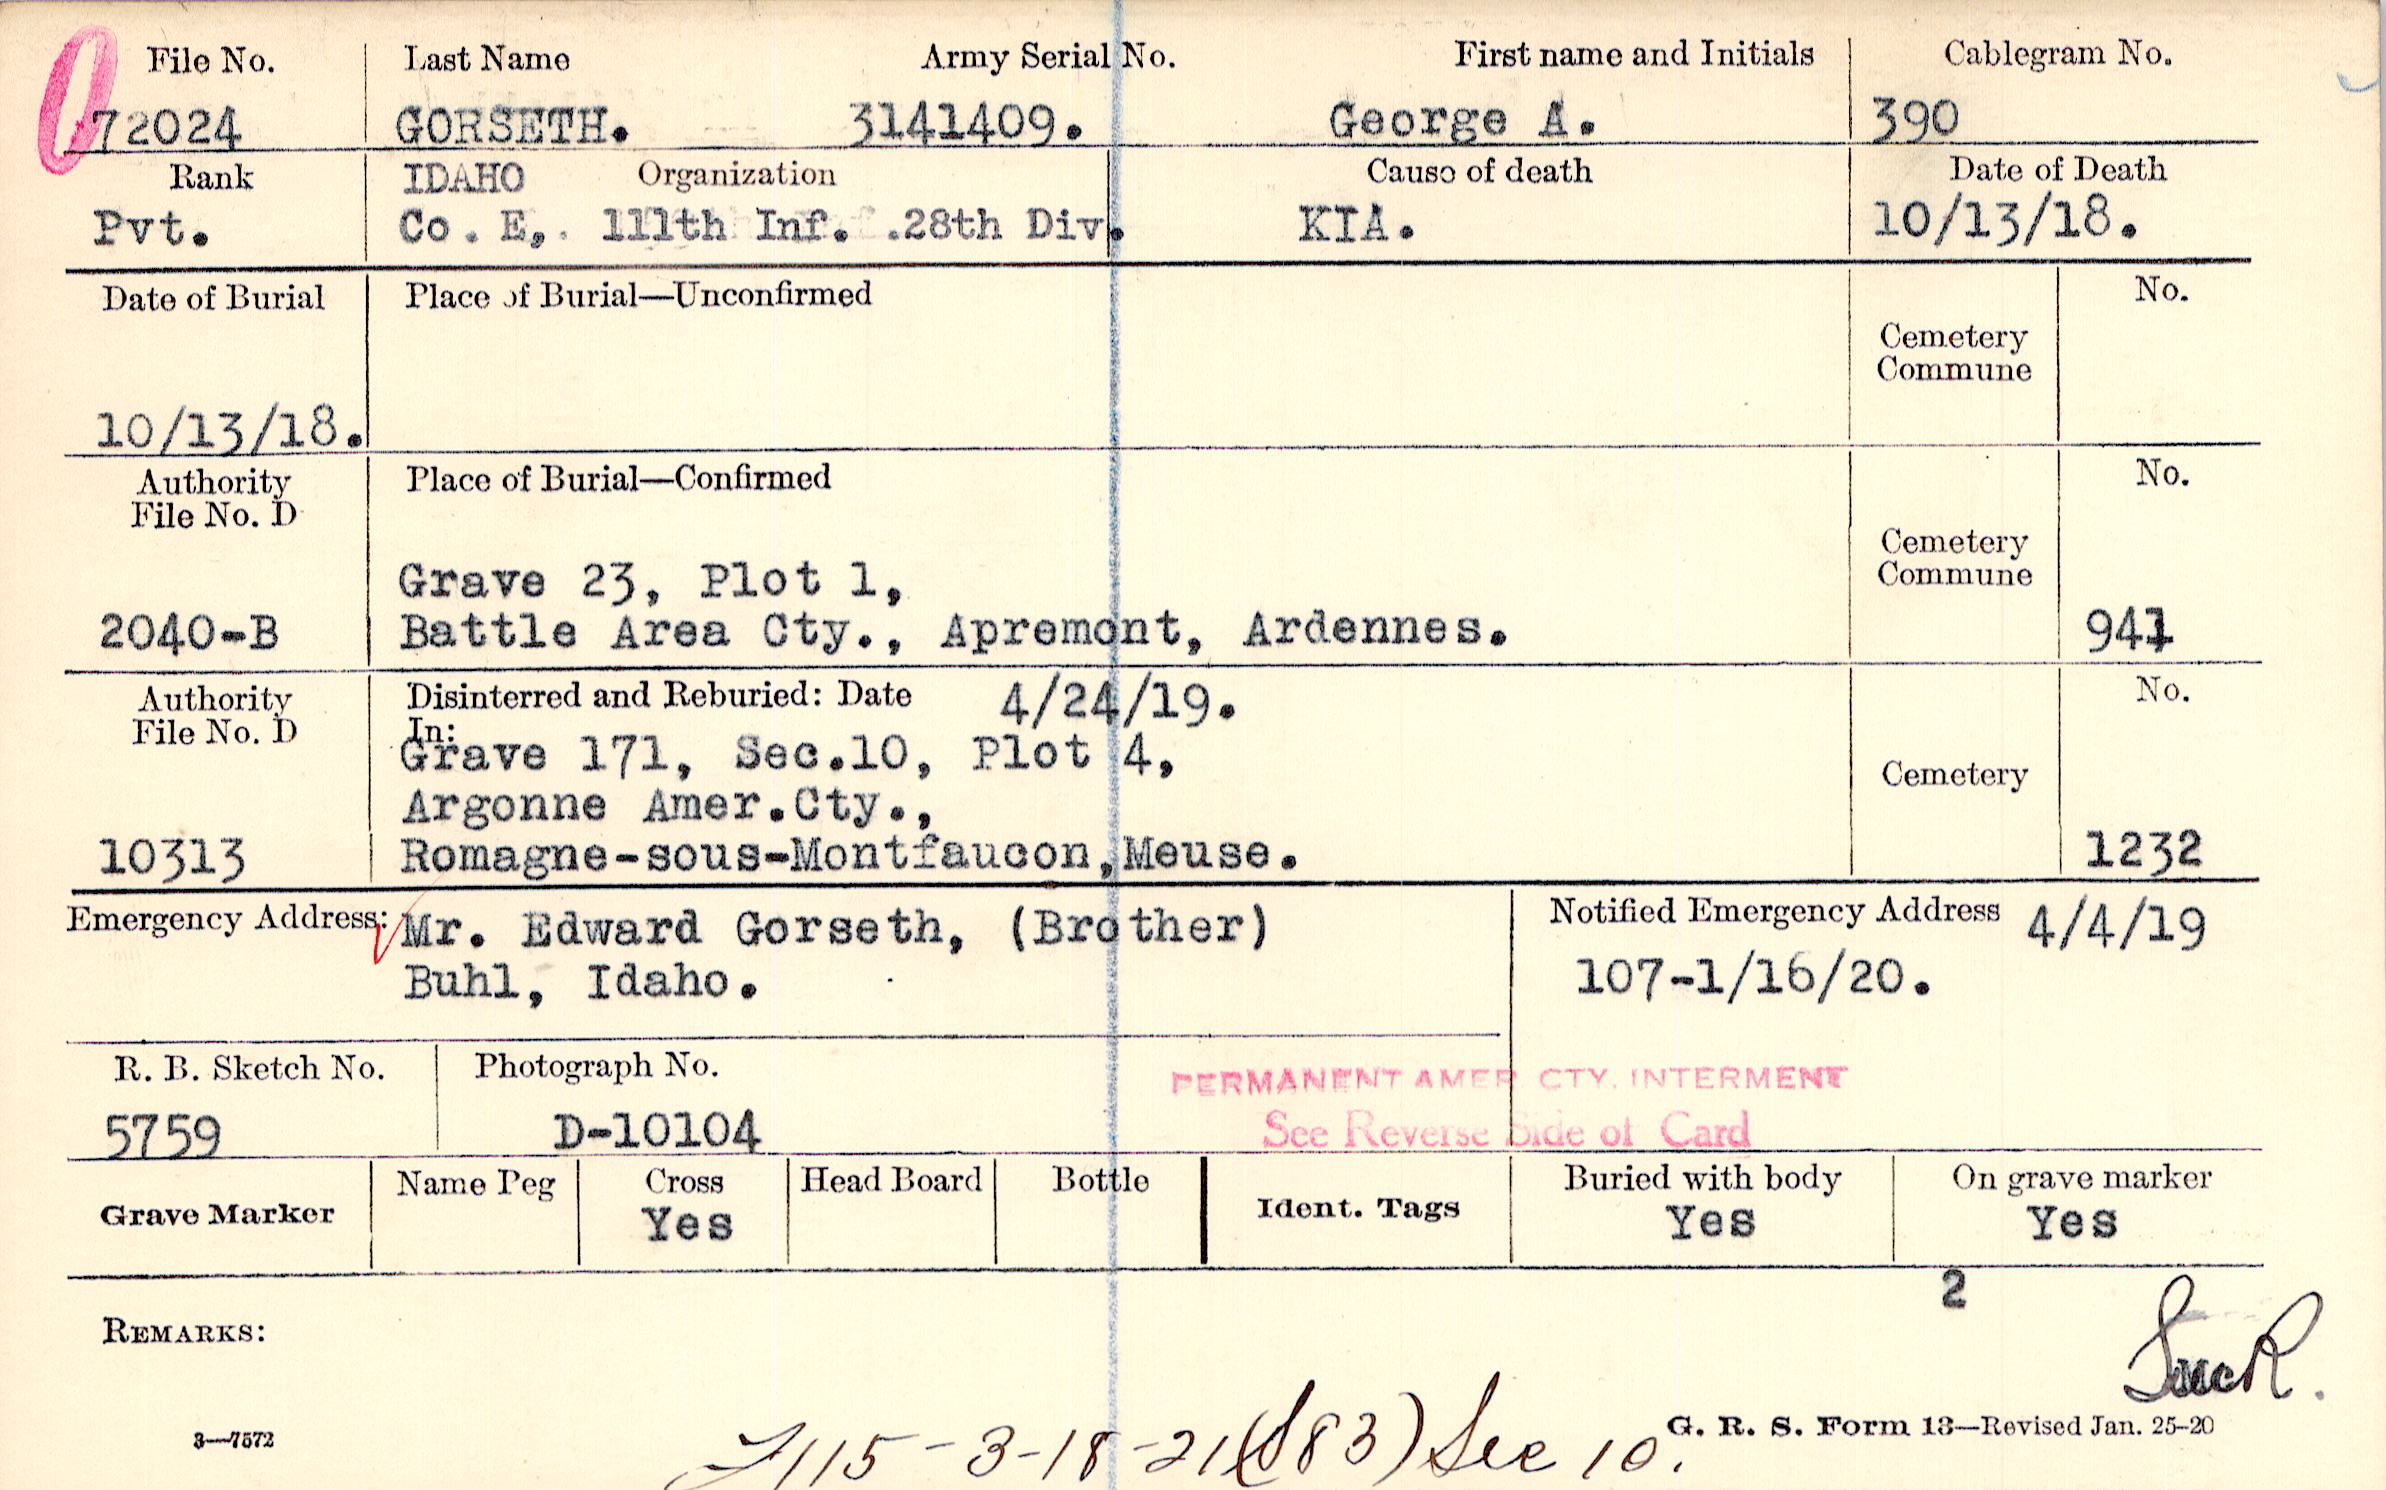 File No. Last Name Army Serial No. First name and Initials Cablegram No.
72024 GORSETH. 3141409. George A. 390
Rank IDAHO Organization Cause of death Date of Death
Pvt. Co. E, 111th Inf. 28th Div. KIA. 10/13/18.
Date of Burial Place of Burial—Unconfirmed No.
Cemetery
Commune
10/13/18.
Authority Place of Burial—Confirmed No.
File No. D
Cemetery
Commune
Grave 23, Plot 1,
2040-B Battle Area Cty., Apremont, Ardennes. 941
Authority Disinterred and Reburied: Date 4/24/19. No.
File No. D In:
Grave 171, Sec.10, Plot 4,
Cemetery
Argonne Amer.Cty.,
10313 Romagne-sous-Montfaucon,Meuse. 1232
Emergency Address: Mr. Edward Gorseth, (Brother) Notified Emergency Address 4/4/19
Buhl, Idaho. 107-1/16/20.
R. B. Sketch No. Photograph No. PERMANENT AMER CTY. INTERMENT
5759 D-10104 See Reverse Side of Card
Grave Marker Name Peg Cross Head Board Bottle Ident. Tags Buried with body On grave marker
Yes Yes Yes
2
REMARKS:
3—7572 G. R. S. Form 13—Revised Jan. 25-20
115-3-18-21 (S83) Sec 10.